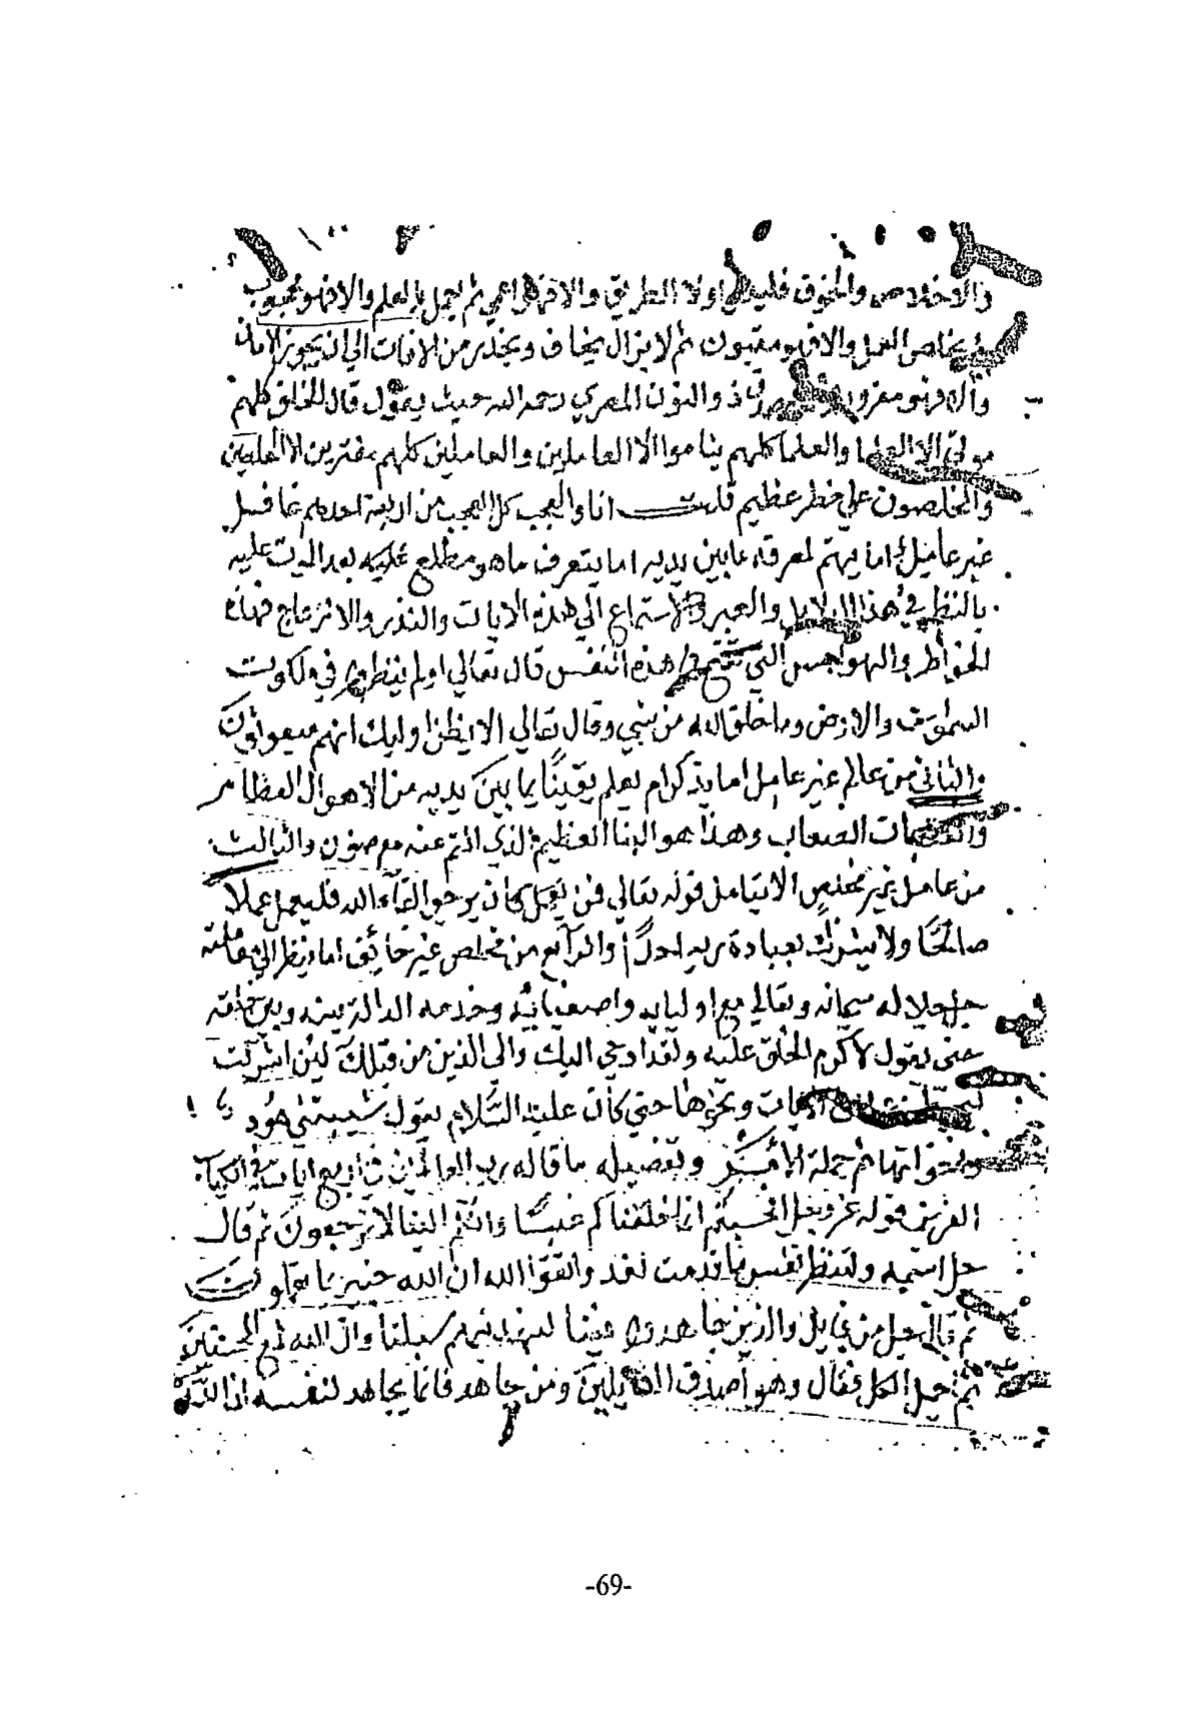 والاخلاص والخوف فليعلم اولا الطريق والا فهو اعمي ثم يعمل بالعلم والا فهو محجوب
ثم يخلص العمل والا فهو مغبون ثم لا يزال يخاف ويحذر من الافات الي ان يجد الامان
والا فهو مغرور ذو النون المصري رحمه الله حيث يقول قال الخلق كلهم
موتي الا العلما والعلما كلهم نيام الا العاملين والعاملين كلهم مغترين الا المخلصين
والمخلصون علي خطر عظيم قلت انا والعجب كل العجب من اربعة احدهم عاقل
غير عامل اما يهتم لمعرفة ما بين يديه اما يتعرف ما هو مطلع عليه بعد الموت عليه
بالنظر في هذا الدلايل والعبر والاستماع الي هذه الايات والنذر والانزعاج بهذه
الخواطر والهواجس التي هذه النفس قال تعالي اولم ينظروا في ملكوت
السموت والارض وما خلق الله من شي وقال تعالي الا يظن اوليك انهم مبعوثون
والثاني من عالم غير عامل اما يذكر ام يعلم يقينًا بما بين يديه من الاهوال العظام
والعقبات الصعاب وهذا هو النبا العظيم الذي انتم عنه معرضون والثالث
من عامل غير مخلصٍ الا يتامل قوله تعالي فمن كان يرجوا لقآء الله فليعمل عملا
صالحًا ولا يشرك بعبادة ربه احدًا والرابع من مخلص غير خايف اما ينظر الي معاملته
جل جلاله سبحانه وتعالي مع اوليايه واصفيايه وخدمه الدالة بينه وبين خلقه
حتي يقول لاكرم الخلق عليه ولقد اوحي اليك والي الذين من قبلك لين اشركت
ليحبطن عملك ونحوها حتي كان عليه السلام يقول شيبتني هود
واخواتها ثم جملة الامر وتفصيله ما قاله رب العالمين في اربع ايات في الكتاب
العزيز قوله عز وجل افحسبتم انما خلقناكم عبثًا وانكم الينا لا ترجعون ثم قال
جل اسمه ولتنظر نفس ما قدمت لغد واتقوا الله ان الله خبير بما تعملون
ثم قال جل من قايل والذين جاهدوا فينا لنهدينهم سبلنا وان الله لمع المحسنين
ثم اجمل الكل فقال وهو اصدق القايلين ومن جاهد فانما يجاهد لنفسه ان الله
-69-